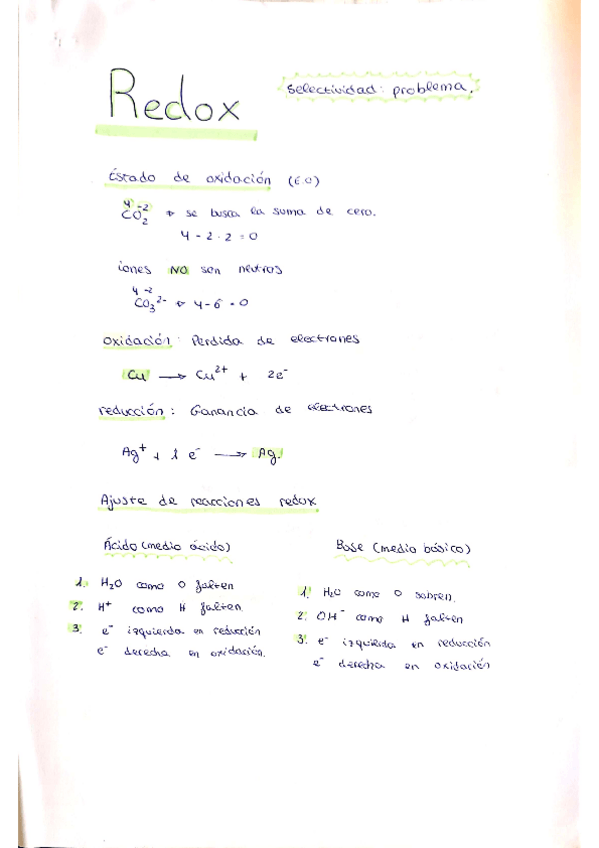 Redox
Selectividad: problema.
Estado de oxidación (E.O)
4 -2
CO₂ → se busca la suma de cero.
4 - 2 · 2 = 0
iones NO son neutros
4 -2
CO₃²⁻ → 4 - 6 = 0
Oxidación: Perdida de electrones
Cu → Cu²⁺ + 2e⁻
reducción: Ganancia de electrones
Ag⁺ + 1 e⁻ → Ag.
Ajuste de reacciones redox
Ácido (medio ácido)
1. H₂O como O falten
2. H⁺ como H falten
3. e⁻ izquierda en reducción
e⁻ derecha en oxidación.
Base (medio básico)
1. H₂O como O sobren.
2. OH⁻ como H falten
3. e⁻ izquierda en reducción
e⁻ derecha en oxidación